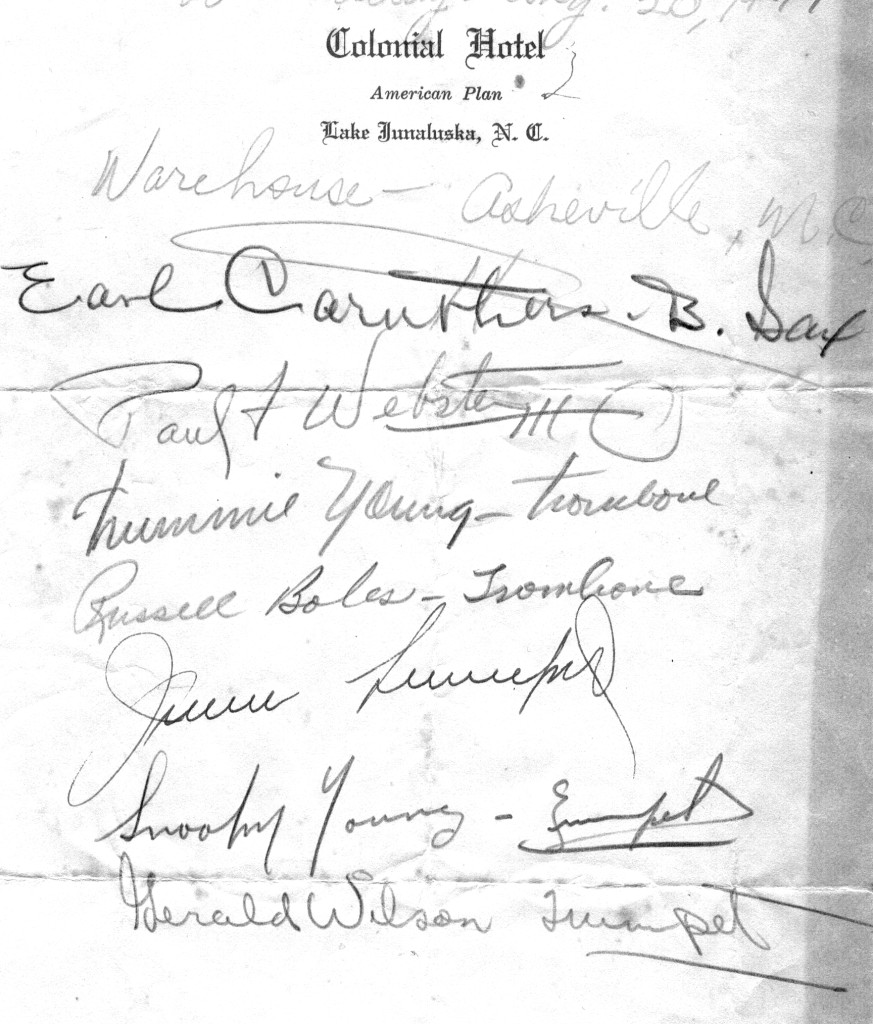 Aug. 20, 1941
Colonial Hotel
American Plan
Lake Junaluska, N. C.
Warehouse - Asheville, N.C.
Earl Caruthers - B. Sax
Paul F Webster III
Trummie Young - trombone
Russell Boles - Trombone
Snooky Young - Trumpet
Gerald Wilson Trumpet